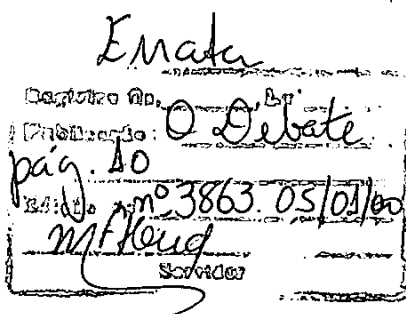 Errata
Registro No. Lv
Publicação: O Debate
pág. 10
Edição nº 3863. 05/01/00
Servidor